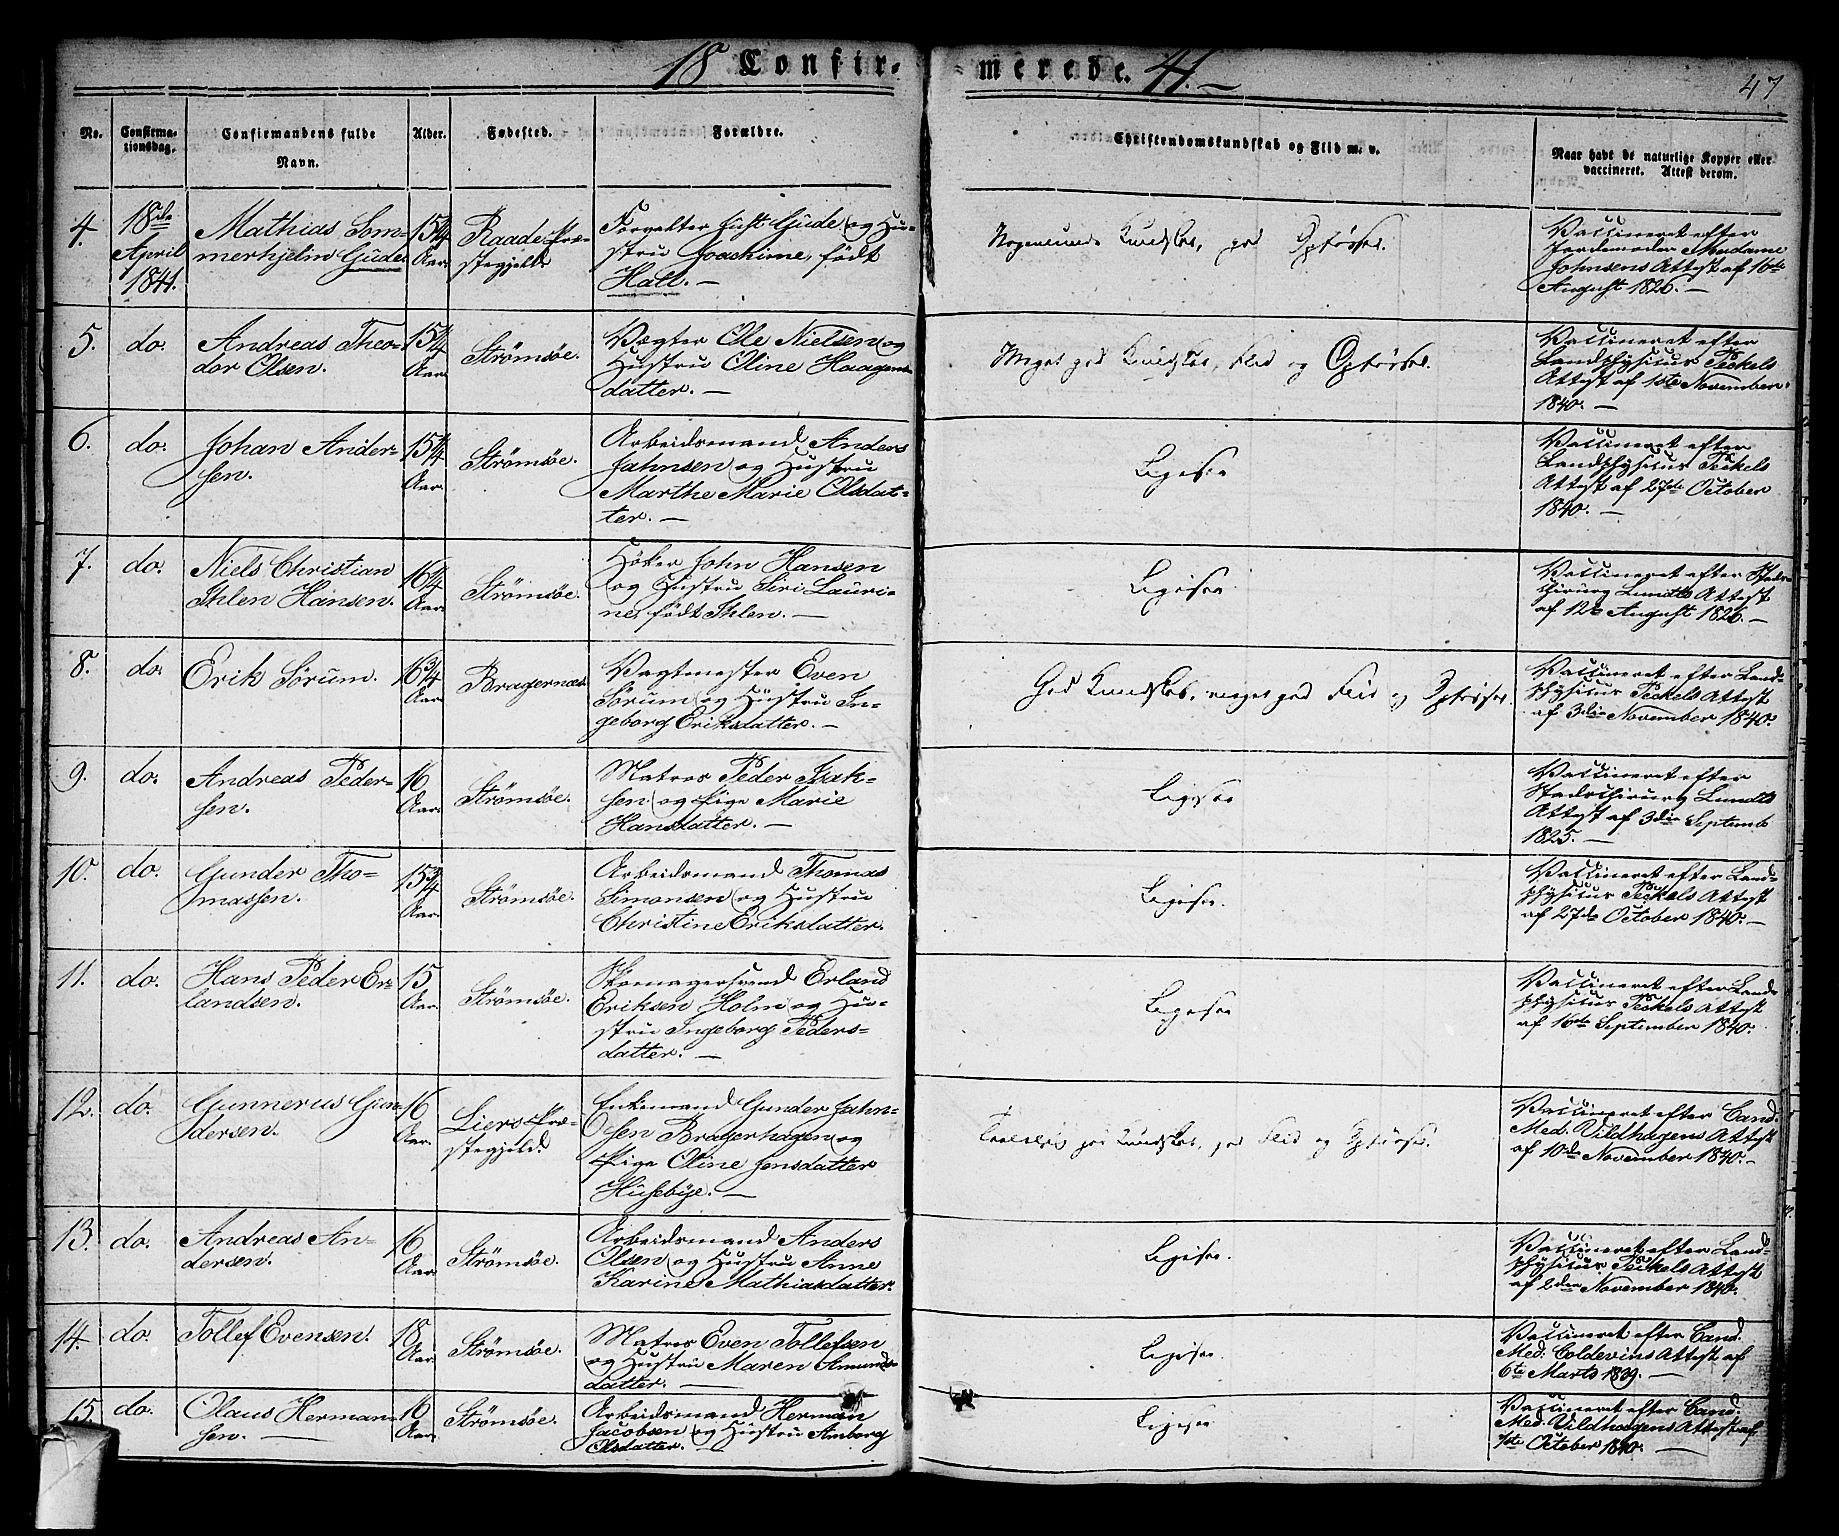 18 Confirmerede. 41. —
47
No. Confirmationsdag. Confirmandens fulde Navn. Alder. Fødested. Forældre. Christendomskundskab og Flid m. v. Naar havt de naturlige Kopper eller vaccineret. Attest derom.
4. 18de April 1841. Mathias Sommerhjelm Gude. 15 1/4 Aar. Raade Præstegjeld. Forvalter Just Gude og Hustru Joachime, født Hall. — Nogenlunde Kundskab, god Opførsel. Vaccineret efter Jordemoder Madame Johnsens Attest af 16de August 1826. —
5. do. Andreas Theodor Olsen. 15 1/4 Aar. Strömsöe. Vægter Ole Nielsen og Hustru Oline Haagensdatter. — Meget god Kundskab, Flid og Opførsel. Vaccineret efter Landphysicus Peckels Attest af 1ste November 1840. —
6. do. Johan Andersen. 15 1/4 Aar. Strömsöe. Arbeidsmand Anders Jahnsen og Hustru Marthe Marie Olsdatter. — Ligesaa Vaccineret efter Landphysicus Peckels Attest af 27de October 1840. —
7. do. Niels Christian Ihlen Hansen. 16 1/4 Aar. Strömsöe. Höker John Hansen og Hustru Siri Laurine, født Ihlen. — Ligesaa Vaccineret efter Stadschirurg Lundts Attest af 12te August 1826. —
8. do. Erik Sørum. 16 3/4 Aar. Bragernæs. Vagtmester Even Sørum og Hustru Ingeborg Eriksdatter. — God Kundskab, meget god Flid og Opførsel. Vaccineret efter Landphysicus Peckels Attest af 3die November 1840.
9. do. Andreas Pedersen. 16 Aar. Strömsöe. Matros Peder Isaksen og Pige Marie Hansdatter. — Ligesaa Vaccineret efter Stadschirurg Lundts Attest af 3die Septemb 1825. —
10. do. Gunder Thomassen. 15 3/4 Aar. Strömsöe. Arbeidsmand Thomas Simonsen og Hustru Christine Eriksdatter. Ligesaa. Vaccineret efter Landphysicus Peckels Attest af 27de October 1840. —
11. do. Hans Peder Erlandsen. 15 Aar. Strömsöe. Skomagersvend Erland Eriksen Holm og Hustru Ingeborg Pedersdatter. — Ligesaa Vaccineret efter Landphysicus Peckels Attest af 16de September 1840.
12. do. Gunnerus Gundersen. 16 Aar. Liers Præstegjeld. Enkemand Gunder Jahnsen Bragerhagen og Pige Oline Jensdatter Husebye. — Taalelig god Kundskab, god Flid og Opførsel. Vaccineret efter Cand. Med. Vildhagens Attest af 10de November 1840. —
13. do. Andreas Andersen. 16 Aar. Strömsöe. Arbeidsmand Anders Olsen og Hustru Anne Karine Mathiasdatter. Ligesaa. Vaccineret efter Landphysicus Peckels Attest af 2den November 1840.
14. do. Tollef Evensen. 18 Aar. Strömsöe. Matros Even Tollefsen og Hustru Maren Amundsdatter. — Ligesaa. Vaccineret efter Cand. Med. Coldevins Attest af 6te Marts 1839. —
15. do. Olaus Hermansen. — 16 Aar. Strömsöe. Arbeidsmand Herman Jacobsen og Hustru Amborg Olsdatter. — Ligesaa Vaccineret efter Cand. Med. Vildhagens Attest af 1ste October 1840. —